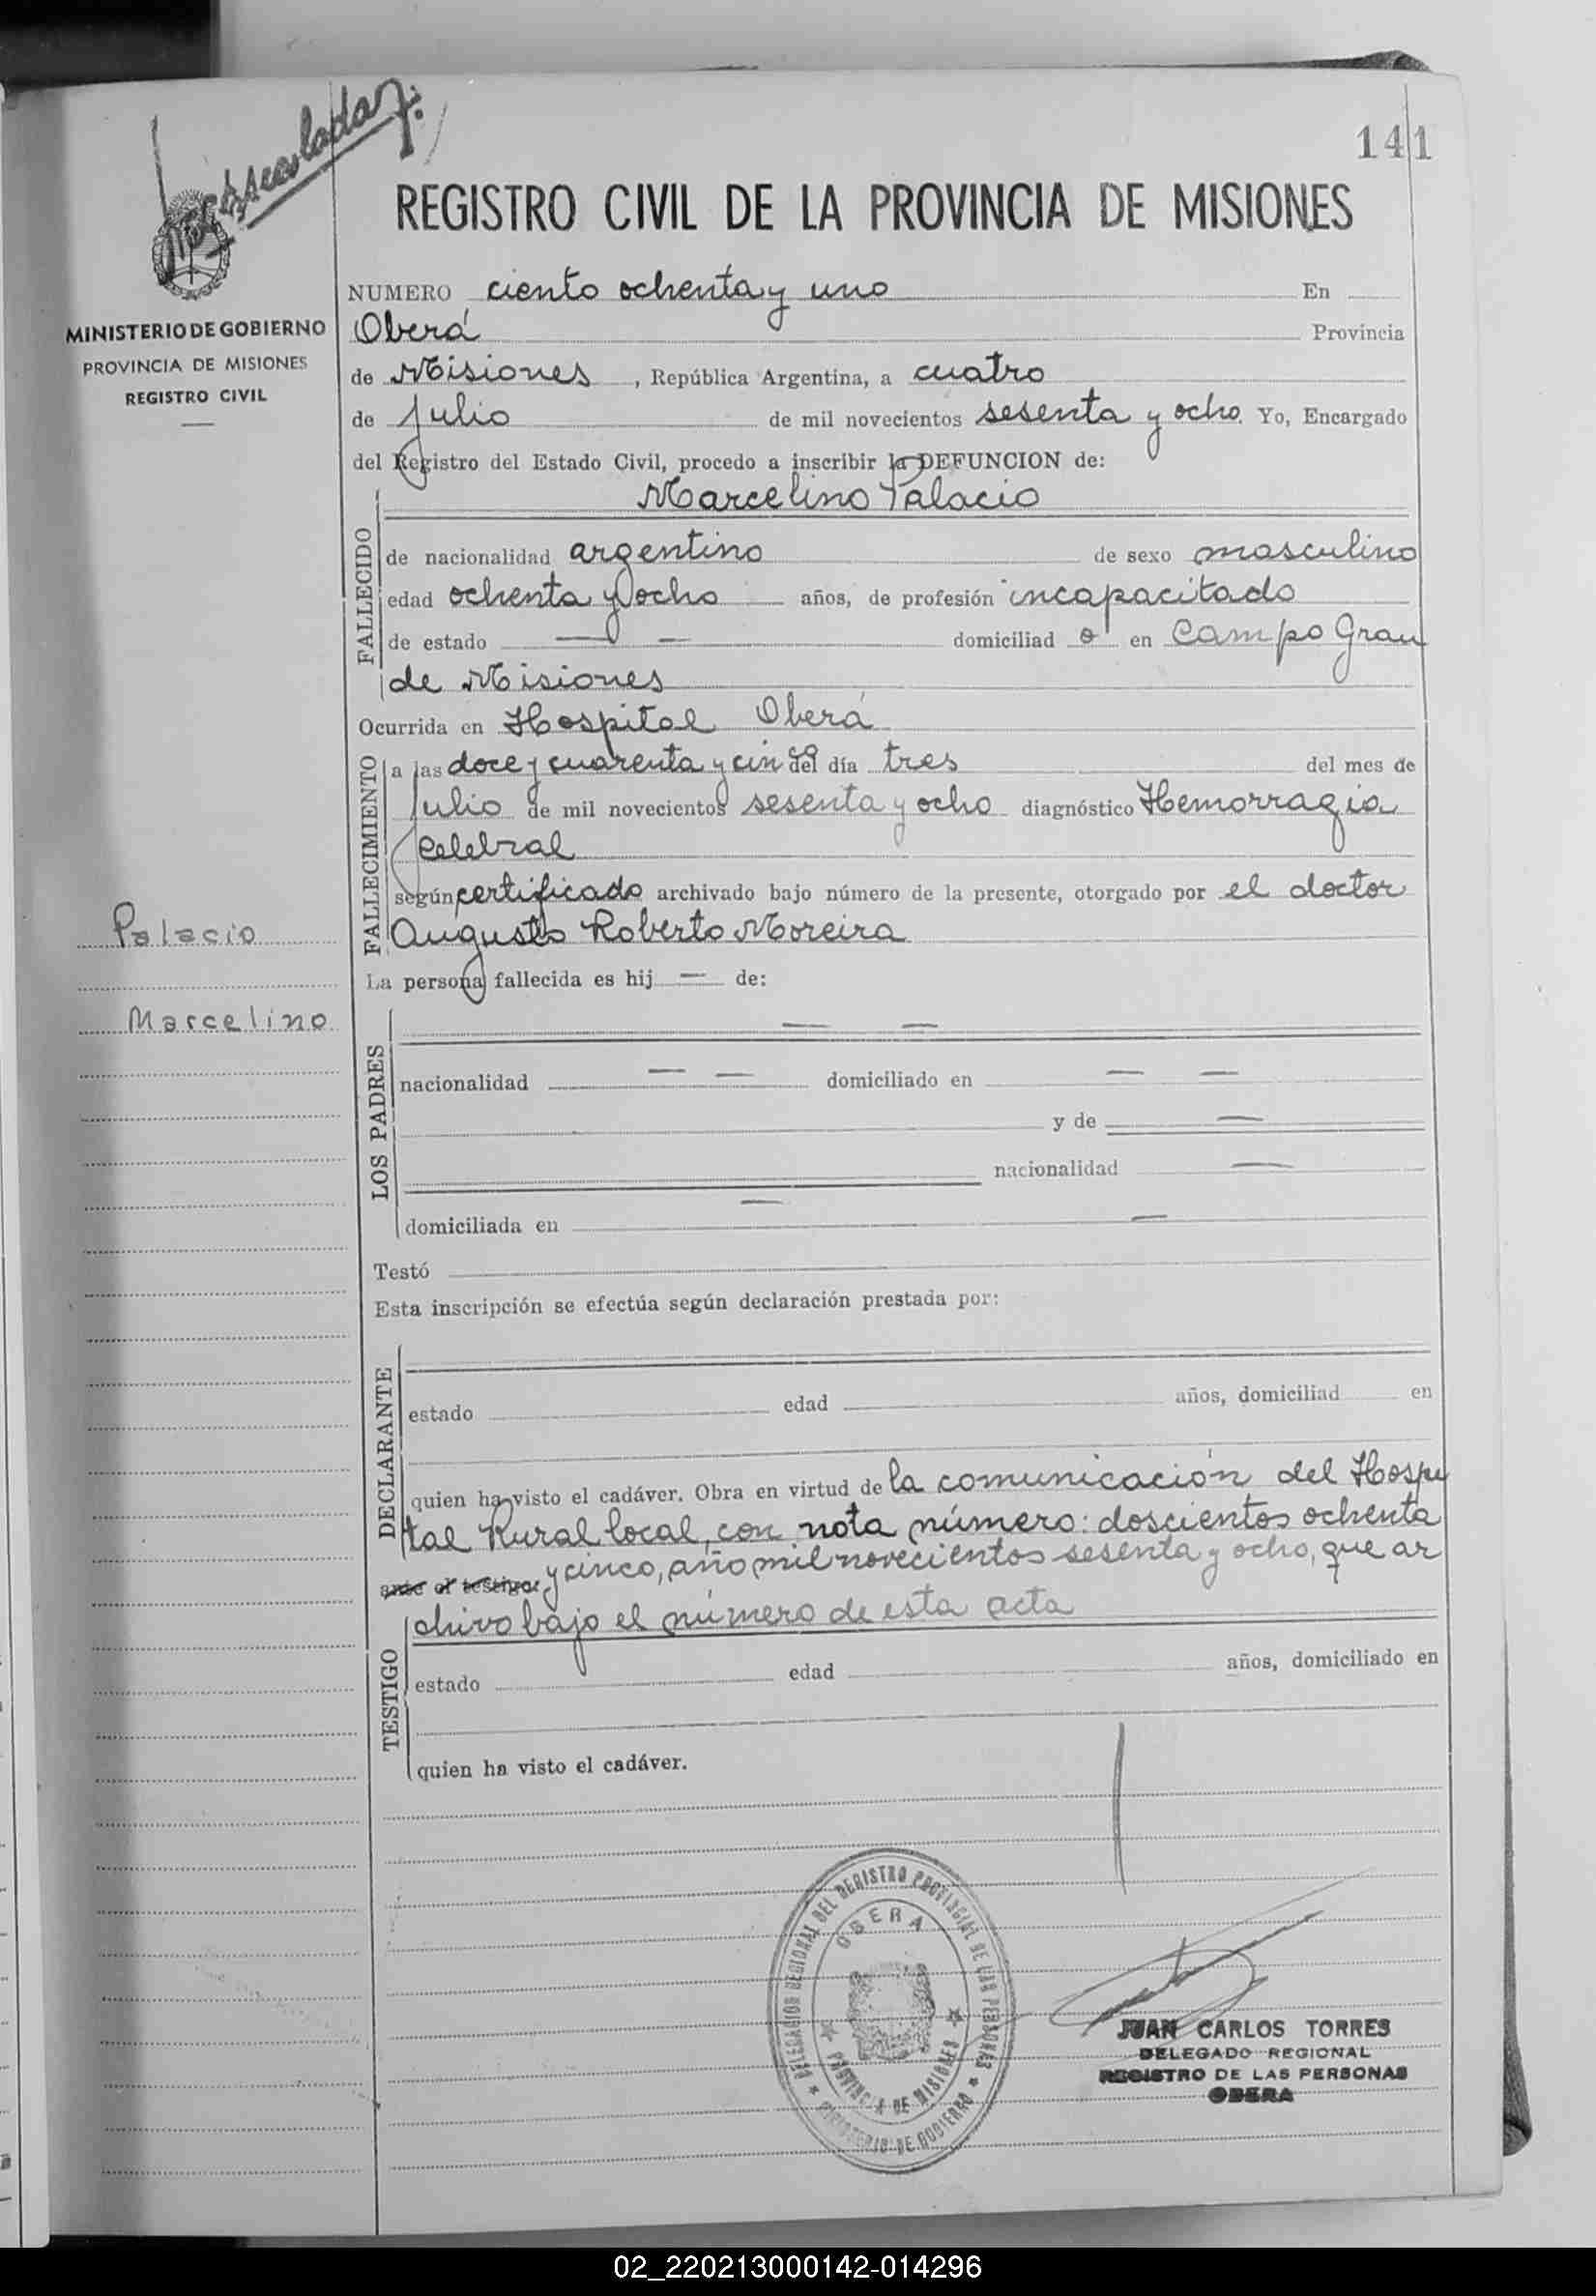 141
REGISTRO CIVIL DE LA PROVINCIA DE MISIONES
MINISTERIO DE GOBIERNO
PROVINCIA DE MISIONES
REGISTRO CIVIL
NUMERO ciento ochenta y uno En
Oberá Provincia
de Misiones, República Argentina, a cuatro
de Julio de mil novecientos sesenta y ocho. Yo, Encargado
del Registro del Estado Civil, procedo a inscribir la DEFUNCION de:
Marcelino Palacio
FALLECIDO
de nacionalidad argentino de sexo masculino
edad ochenta y ocho años, de profesión incapacitado
de estado — — domiciliad o en Campo Gran
de Misiones
Ocurrida en Hospital Oberá
FALLECIMIENTO
a las doce y cuarenta y cinco del día tres del mes de
Julio de mil novecientos sesenta y ocho diagnóstico Hemorragia
Celebral
según certificado archivado bajo número de la presente, otorgado por el doctor
Augusto Roberto Moreira
Palacio
Marcelino
La persona fallecida es hij — de:
LOS PADRES
— —
nacionalidad — — domiciliado en — —
y de —
— nacionalidad —
domiciliada en —
Testó
Esta inscripción se efectúa según declaración prestada por:
DECLARANTE
estado edad años, domiciliad en
quien ha visto el cadáver. Obra en virtud de la comunicación del Hospi
tal Rural local, con nota número: doscientos ochenta
ante el testigo: y cinco, año mil novecientos sesenta y ocho, que ar
chivo bajo el número de esta acta
TESTIGO
estado edad años, domiciliado en
quien ha visto el cadáver.
DELEGACION REGIONAL DEL REGISTRO PROVINCIAL DE LAS PERSONAS
OBERA
PROVINCIA DE MISIONES
MINISTERIO DE GOBIERNO
JUAN CARLOS TORRES
DELEGADO REGIONAL
REGISTRO DE LAS PERSONAS
OBERA
02_220213000142-014296